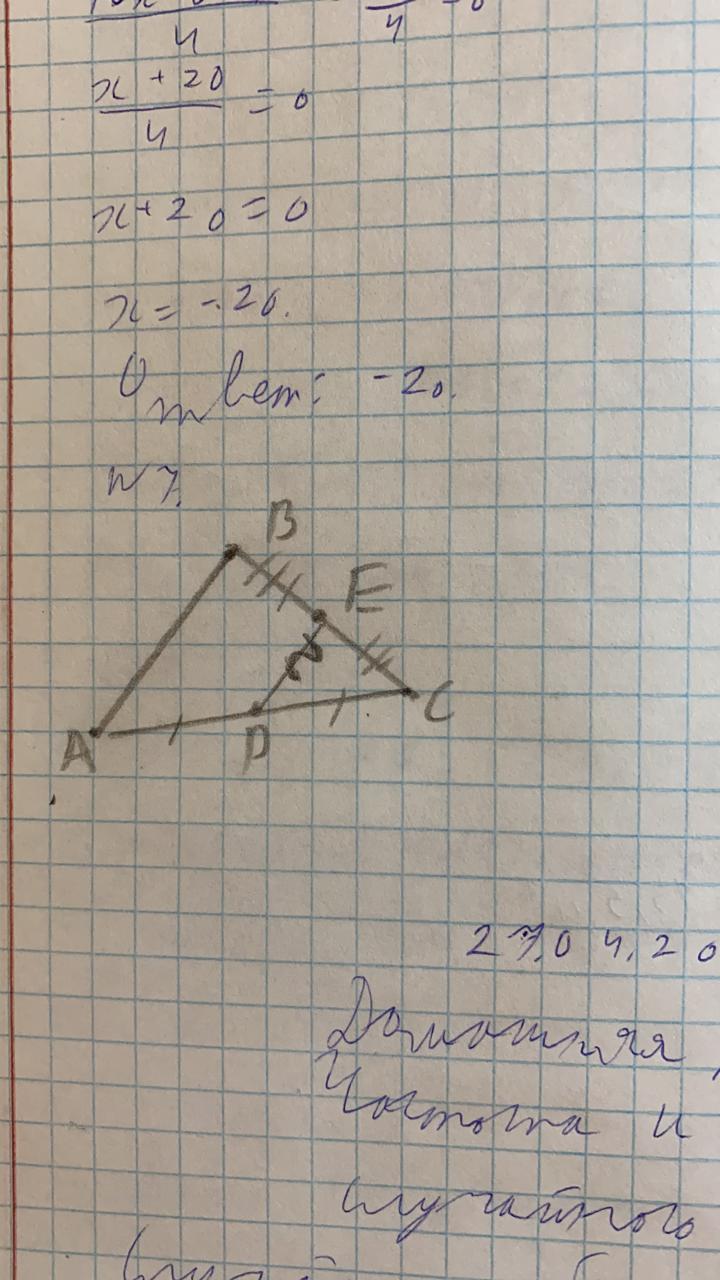 4 4
x + 20
4 = 0
x + 20 = 0
x = -20.
Ответ: -20.
N 7.
B
E
C
A D
27.04.20
Домашняя
Частота и
случайного